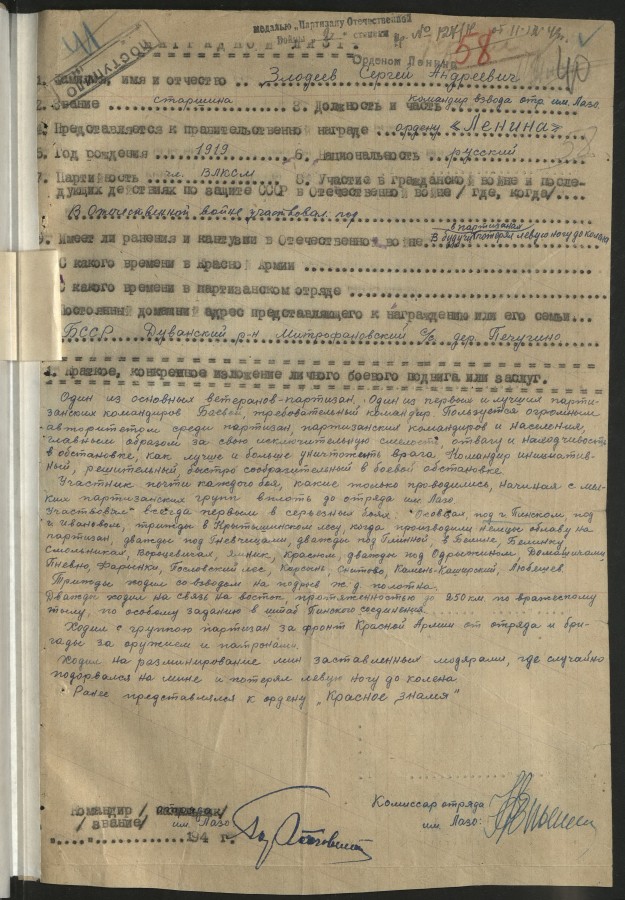 Медалью "Партизану Отечественной
Войны" степени
Пр. № 124/н от 11.
41
ПОСТУПИЛО
НАГРАДНОЙ ЛИСТ.
58
Орденом Ленина
40
1. Фамилия, имя и отчество .. Злодеев Сергей Андреевич
2. Звание ... старшина 3. Должность и часть Командир взвода отр. им. Лазо.
4. Представляется к правительственной награде .. ордену «Ленина»
5. Год рождения ... 1919 ... 6. Национальность .. русский
38
7. Партийность .. чл. ВЛКСМ 8. Участие в Гражданской войне и после-
дующих действиях по защите СССР в Отечественной войне/где, когда/...
В Отечественной войне участвовал год
в партизанах
9. Имеет ли ранения и кантузии в Отечественной войне. В будучи потерял левую ногу до колена
С какого времени в Красной Армии ..........
С какого времени в партизанском отряде ..........
Постоянный домашний адрес представляющего к награждению или его семьи...
БССР Дуванский р-н Митрофановский с/с дер. Печугино
1. Краткое, конкренное изложение личного боевого подвига или заслуг.
Один из основных ветеранов-партизан. Один из первых и лучших парти-
занских командиров. Боевой, требовательный командир. Пользуется огромным
авторитетом среди партизан, партизанских командиров и населения,
главным образом за свою исключительную смелость, отвагу и находчивость
в обстановке, как лучше и больше уничтожить врага. Командир инициатив-
ный, решительный, быстро сообразительный в боевой обстановке.
Участник почти каждого боя, какие только проводились, начиная с мел-
ких партизанских групп вплоть до отряда им. Лазо.
Участвовал всегда первым в серьезных боях: под г. Пинском, под
г. Ивановом, трижды в Крытышинском лесу, когда производили немцы облаву на
партизан, дважды под Гневчицами, дважды под Глинной, в Белине, Белинку
Смольниках, Вороцевичах, Яинник, Красном, дважды под Одрыжином, Домашицами,
Пневно, Фарынки, Гословский лес, Корсинь, Сытово, Камень-Каширский, Любешев.
Трижды ходил со взводом на подрыв ж.д. полотна.
Дважды ходил на связь на восток, протяженностью до 250 км. по вражескому
тылу, по особому заданию в штаб Пинского соединения.
Ходил с группою партизан за фронт Красной Армии от отряда и бри-
гады за оружием и патронами.
Ходил на разминирование мин заставленных мадярами, где случайно
подорвался на мине и потерял левую ногу до колена.
Ранее представлялся к ордену "Красное знамя"
Командир /
им. Лазо
/звание/
"....".......... 194 г.
Комиссар отряда
им. Лазо: